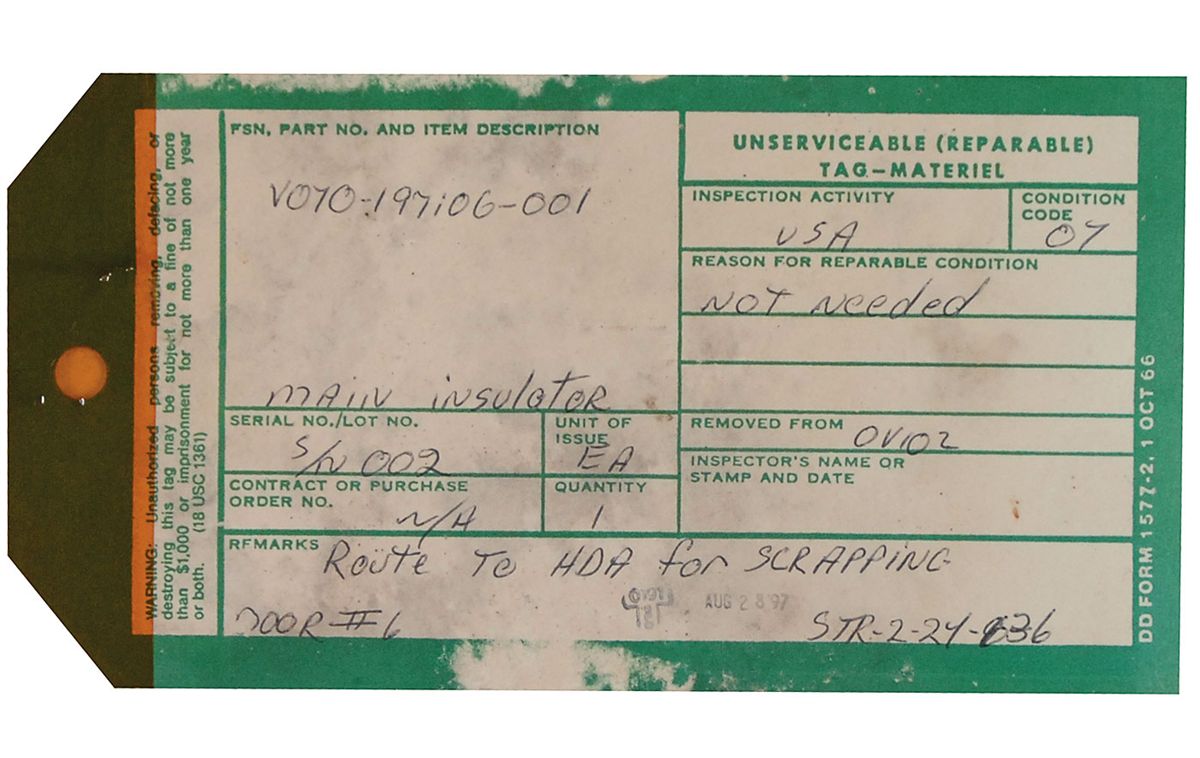 WARNING: Unauthorized persons removing, defacing, or
destroying this tag may be subject to a fine of not more
than $1,000 or imprisonment for not more than one year
or both. (18 USC 1361)
FSN, PART NO. AND ITEM DESCRIPTION
V070-197106-001
MAIN INSULATOR
SERIAL NO./LOT NO.
S/N 002
UNIT OF
ISSUE
EA
CONTRACT OR PURCHASE
ORDER NO.
N/A
QUANTITY
1
UNSERVICEABLE (REPARABLE)
TAG—MATERIEL
INSPECTION ACTIVITY
USA
CONDITION
CODE
07
REASON FOR REPARABLE CONDITION
NOT Needed
REMOVED FROM
OV102
INSPECTOR'S NAME OR
STAMP AND DATE
REMARKS
Route To HDA for SCRAPPING
AUG 28 '97
DOOR #6
STR-2-24-636
DD FORM 1577-2, 1 OCT 66